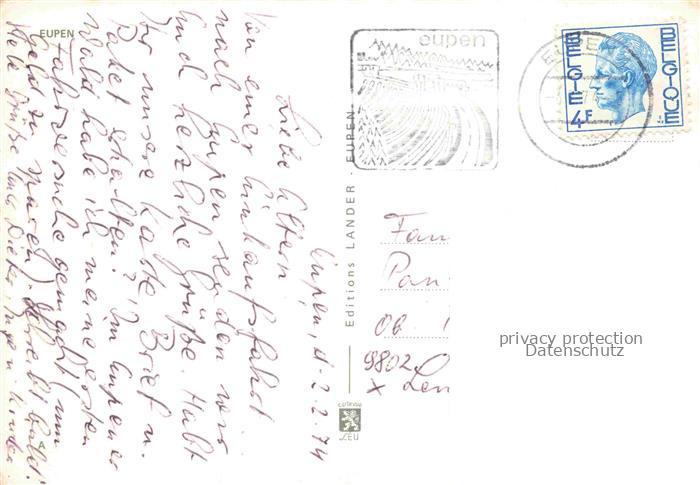 EUPEN
Eupen, d. 2.2.74
Liebe Eltern
Von einer Einkaufsfahrt
nach Eupen senden wir
Euch herzliche Grüße. Habt
Ihr unsere Karte, Brief u.
Paket erhalten? Im Eupener
Wald habe ich meine ersten
Fahrversuche gemacht (um
Geld zu sparen). Schreibt bald!
Viele Grüße und Kinder
eupen
Editions LANDER - EUPEN
EUPEN
BELGIE 4F
BELGIQUE
Fam
Pan
Ob.
9802
x Len
privacy protection
Datenschutz